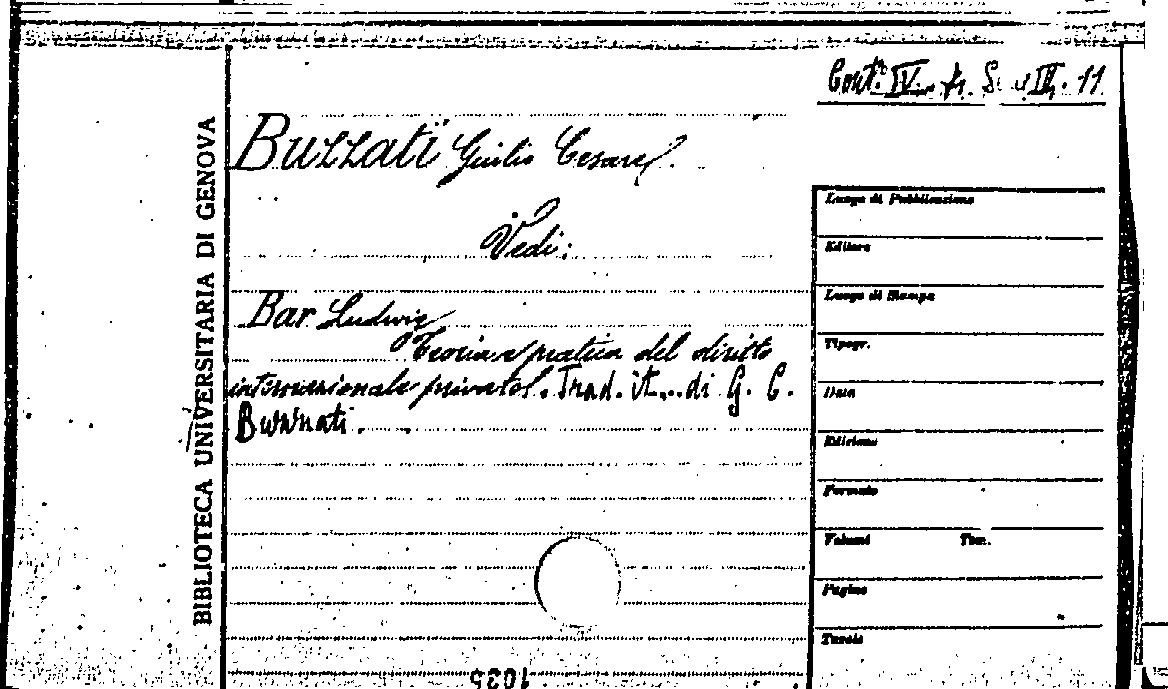 BIBLIOTECA UNIVERSITARIA DI GENOVA
Buzzati Giulio Cesare.
Vedi:
Bar Ludwig
Teoria e pratica del diritto
internazionale privato. Trad. it... di G. C.
Buzzati.
Luogo di Pubblicazione
Editore
Luogo di Stampa
Tipogr.
Data
Edizione
Formato
Volumi Tom.
Pagine
Tavole
1035